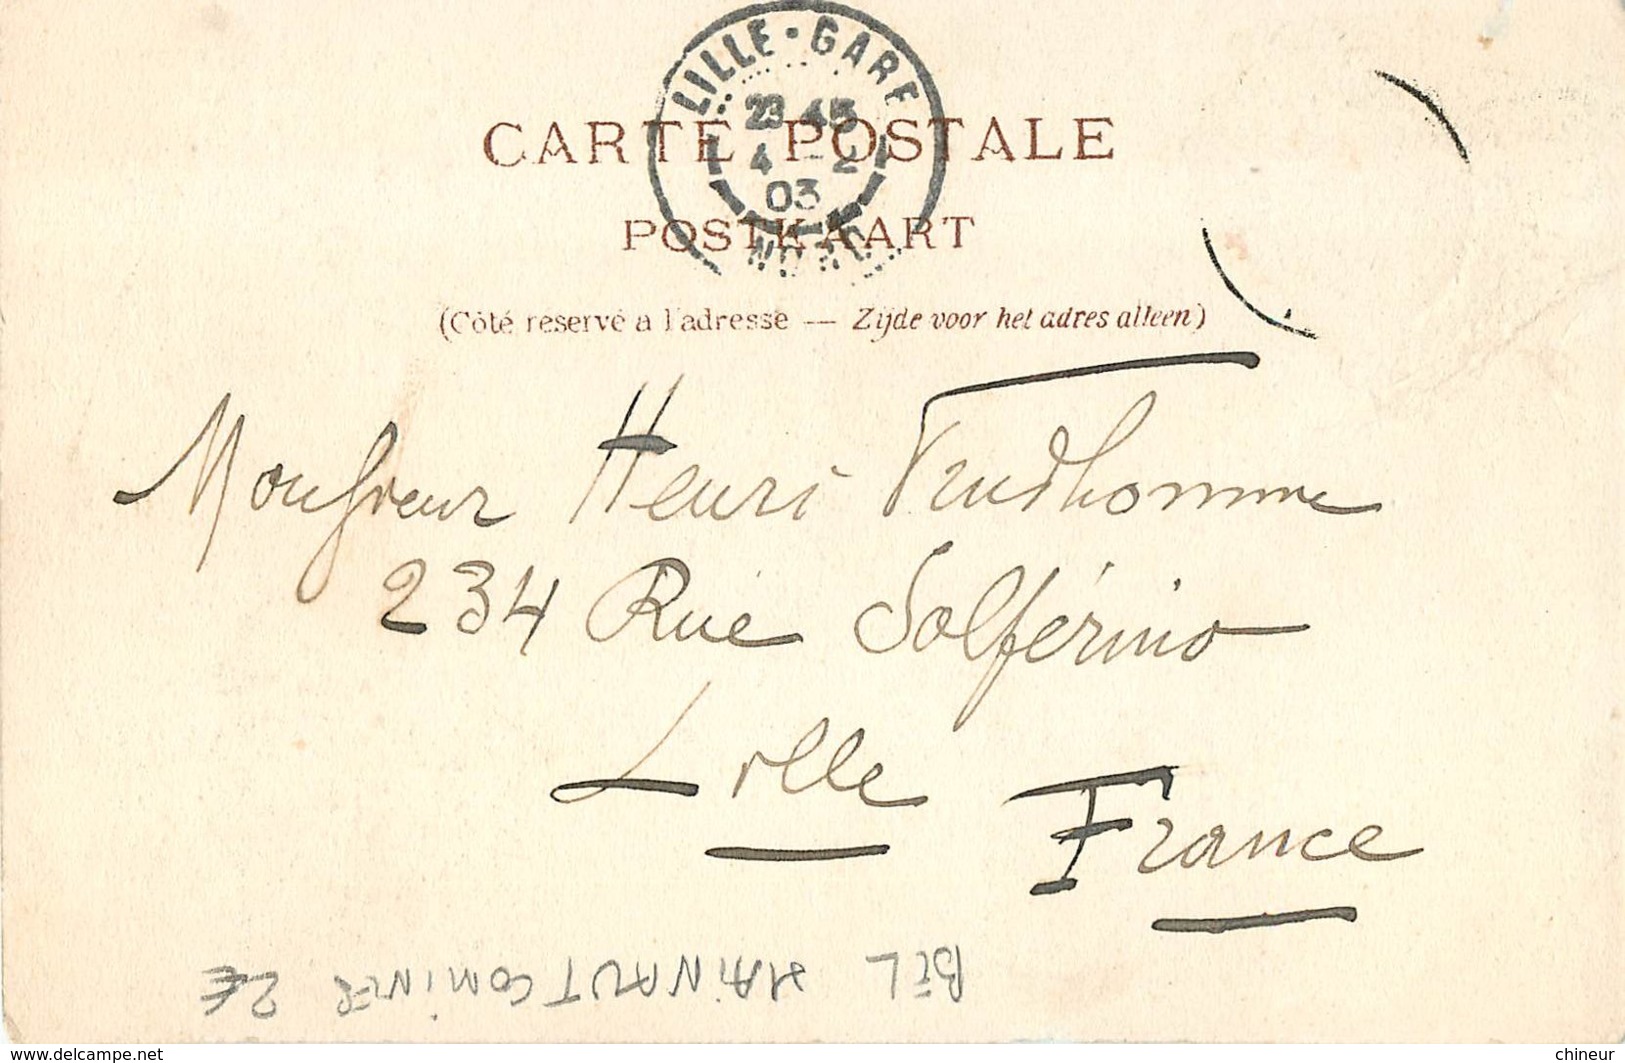 LILLE - GARE
23 45
4 - 2
03
NORD
CARTE POSTALE
POSTKAART
(Côté reservé a l'adresse — Zijde voor het adres alleen)
Monsieur Henri Prudhomme
234 Rue Solférino
Lille
France
BEL HAINAUT COMINES 2€
www.delcampe.net
chineur